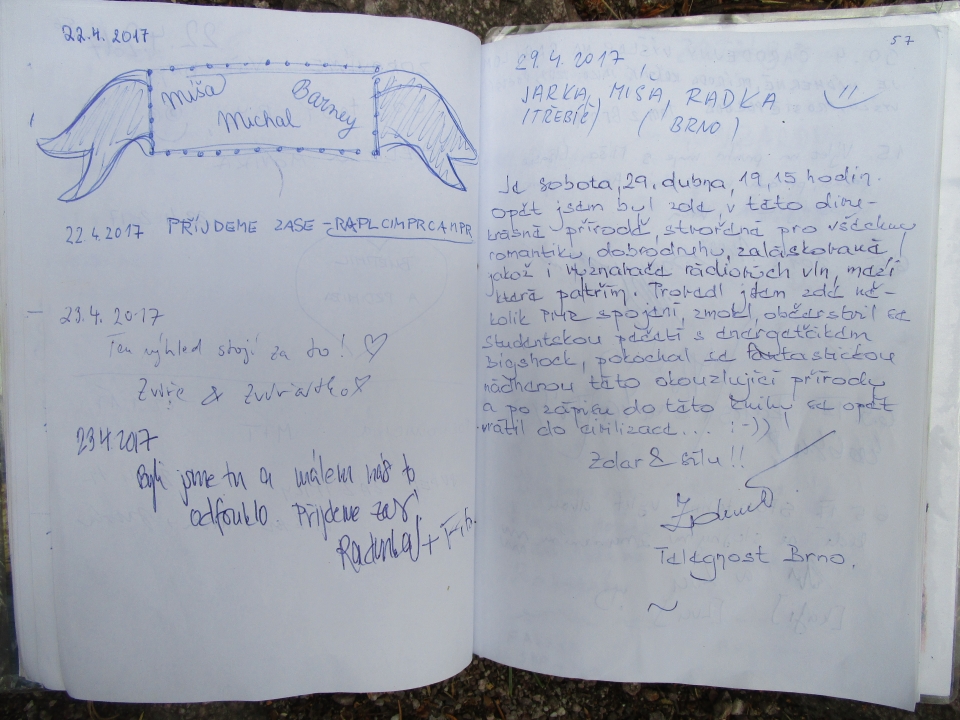 22.4. 2017
Míša
Michal
Barney
22.4.2017 PŘÍJDEME ZASE - RAPLCIMPRCAMPR
23.4. 2017
Ten výhled stojí za to! ♡
Zvíře & Zvířátko
23.4 2017
Byli jsme tu a málem nás to
odfouklo. Přijdeme zas!
Radunka +
57
29.4. 2017
JARKA, MIŠA, RADKA
(TŘEBÍČ) (BRNO)
Je sobota, 29. dubna, 19,15 hodin.
Opět jsem byl zde, v této div-
krásné přírodě, stvořené pro všechny
romantiky, dobrodruhy, zaláskované,
jakož i vyznavače rádiových vln, mezi
které patřím. Provedl jsem zde ně-
kolik PMR spojení, zmokl, občerstvil se
studentskou pečetí s energeťákem
Bigshock, pokochal se fantastickou
nádherou této okouzlující přírody
a po zápisu do této knihy se opět
vrátil do civilizace... :-))
Zdar & sílu!!
Telegnost Brno.
~